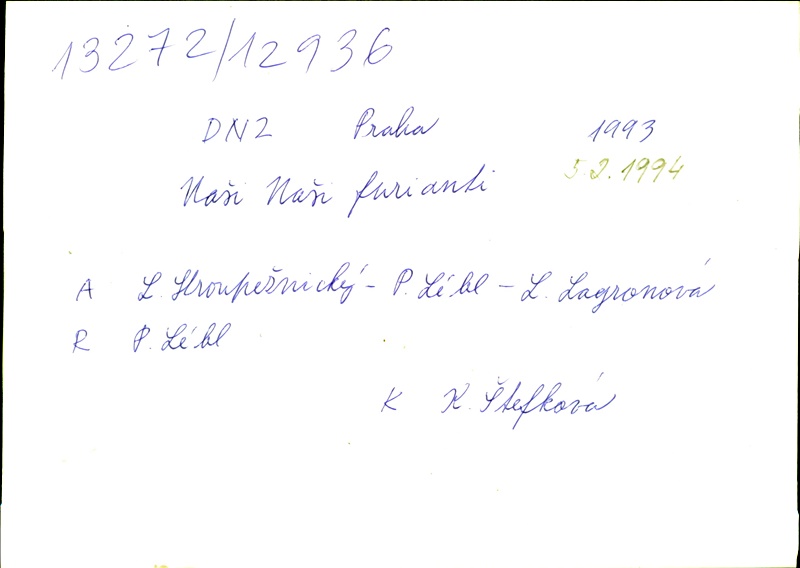 13272/12936
DNZ Praha 1993
Naši Naši furianti 5.2.1994
A L. Stroupežnický - P. Lébl - L. Lagronová
R P. Lébl
K K. Štefková